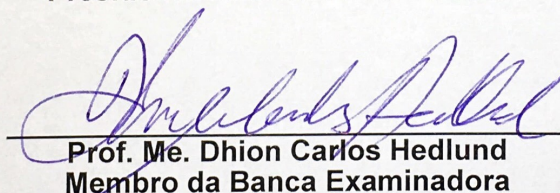 Prof. Me. Dhion Carlos Hedlund
Membro da Banca Examinadora